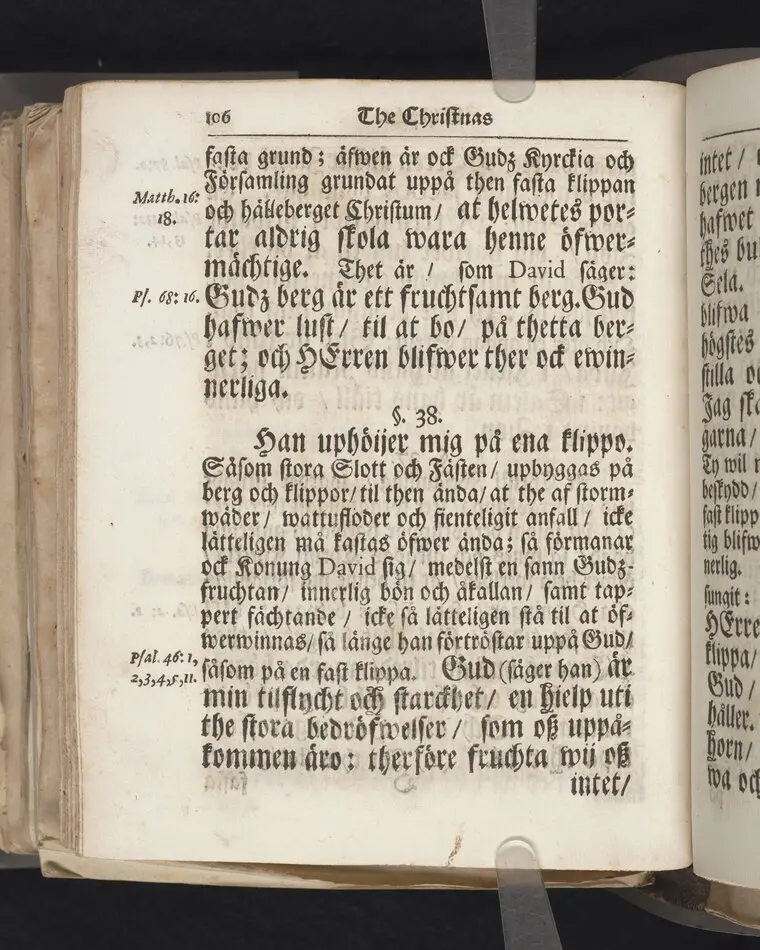 106 The Christnas
fasta grund; äfwen är ock Gudz Kyrckia och
Församling grundat uppå then fasta klippan
Matth. 16: 18.
och hälleberget Christum/ at helwetes por=
tar aldrig skola wara henne öfwer=
mächtige. Thet är / som David säger:
Ps. 68: 16.
Gudz berg är ett fruchtsamt berg. Gud
hafwer lust/ til at bo/ på thetta ber=
get; och HErren blifwer ther ock ewin=
nerliga.
§. 38.
Han uphöijer mig på ena klippo.
Såsom stora Slott och Fästen/ upbyggas på
berg och klippor/ til then ända/ at the af storm=
wäder/ wattufloder och fienteligit anfall/ icke
lätteligen må kastas öfwer ända; så förmanar
ock Konung David sig/ medelst en sann Gudz-
fruchtan/ innerlig bön och åkallan/ samt tap=
pert fächtande/ icke så lätteligen stå til at öf=
werwinnas/ så länge han förtröstar uppå Gud/
Psal. 46: 1, 2,3,4,5,11.
såsom på en fast klippa. Gud (säger han) är
min tilflycht och starckhet/ en hielp uti
the stora bedröfwelser/ som oß uppå=
kommen äro: therföre fruchta wij oß
intet/
intet /
bergen
hafwet
thes bu
Sela.
blifwa
högstes
stilla
Jag ska
garna/
Ty wil
beskydd/
fast klipp
tig blifw
nerlig.
sungit:
HErre
klippa/
Gud /
håller.
horn/
wa och